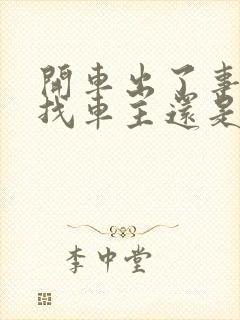 開車出了事
找車主還是
李中堂